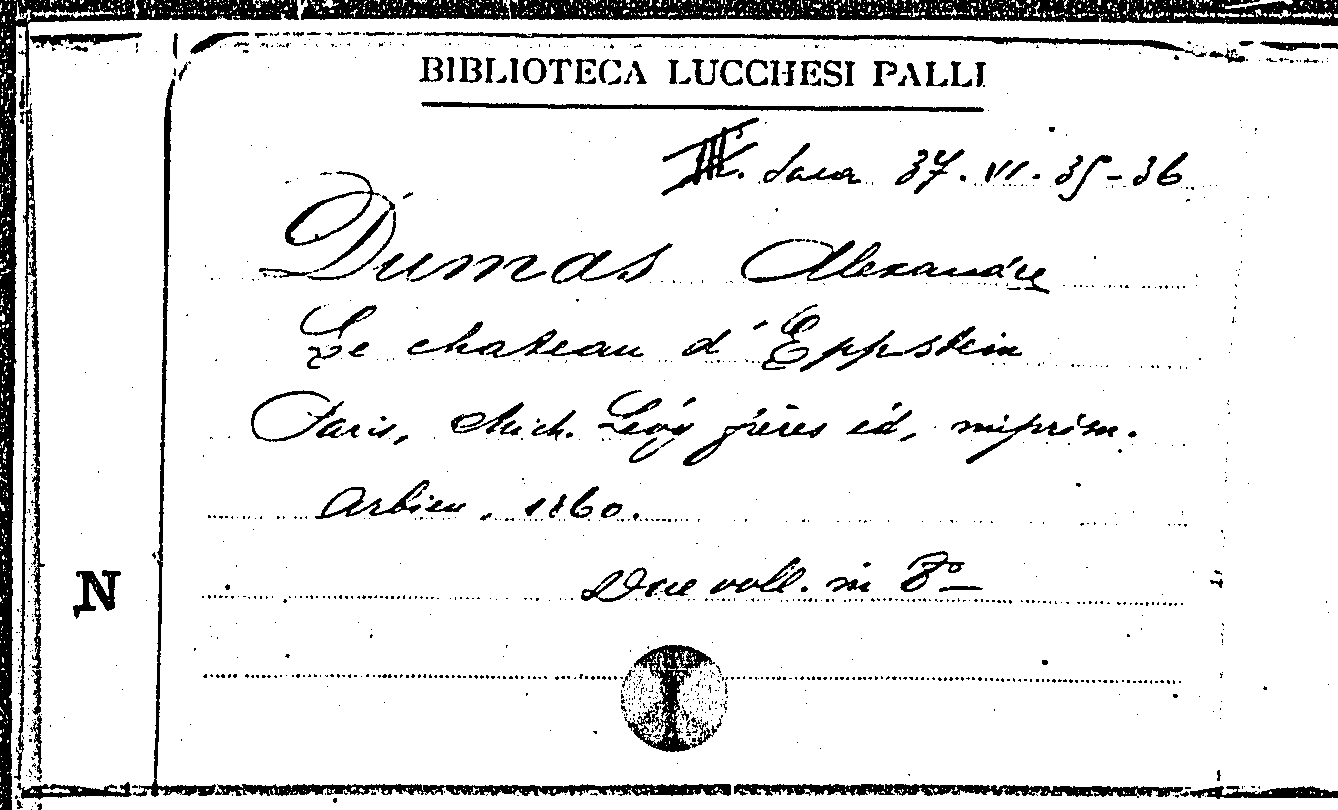 BIBLIOTECA LUCCHESI PALLI
III. Sala 37. VI. 35-36
Dumas Alexandre
Le chateau d'Eppstein
Paris, Mich. Levy frères éd, imprim.
Arbieu, 1860.
N
Due voll. in 8º